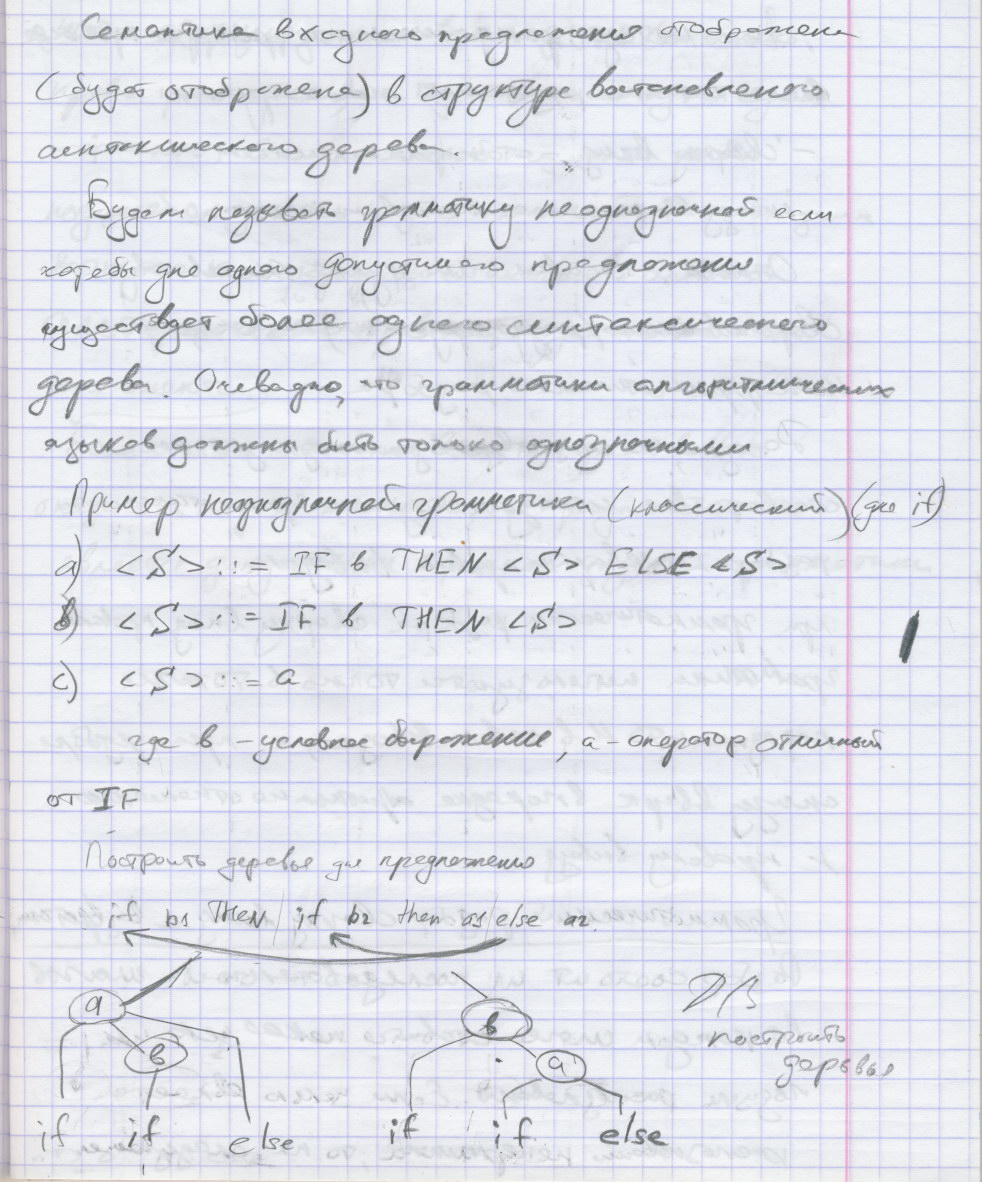 Семантика входного предложения отображена
(будет отображена) в структуре востановленого
синтаксического дерева.
Будем называть грамматику неоднозначной если
хотябы для одного допустимого предложения
существует более одного синтаксического
дерева. Очевидно, что грамматики алгоритмических
языков должны быть только однозначными
Пример неоднозначной грамматики (классический) (для if)
a) <S> ::= IF в THEN <S> ELSE <S>
b) <S> ::= IF в THEN <S>
c) <S> ::= a
где в - условное выражение, a - оператор отличный
от IF
Построить деревья для предложения
if b1 THEN if b2 then a1 else a2.
a в
в a
Д/З
построить
деревья
if if else if if else